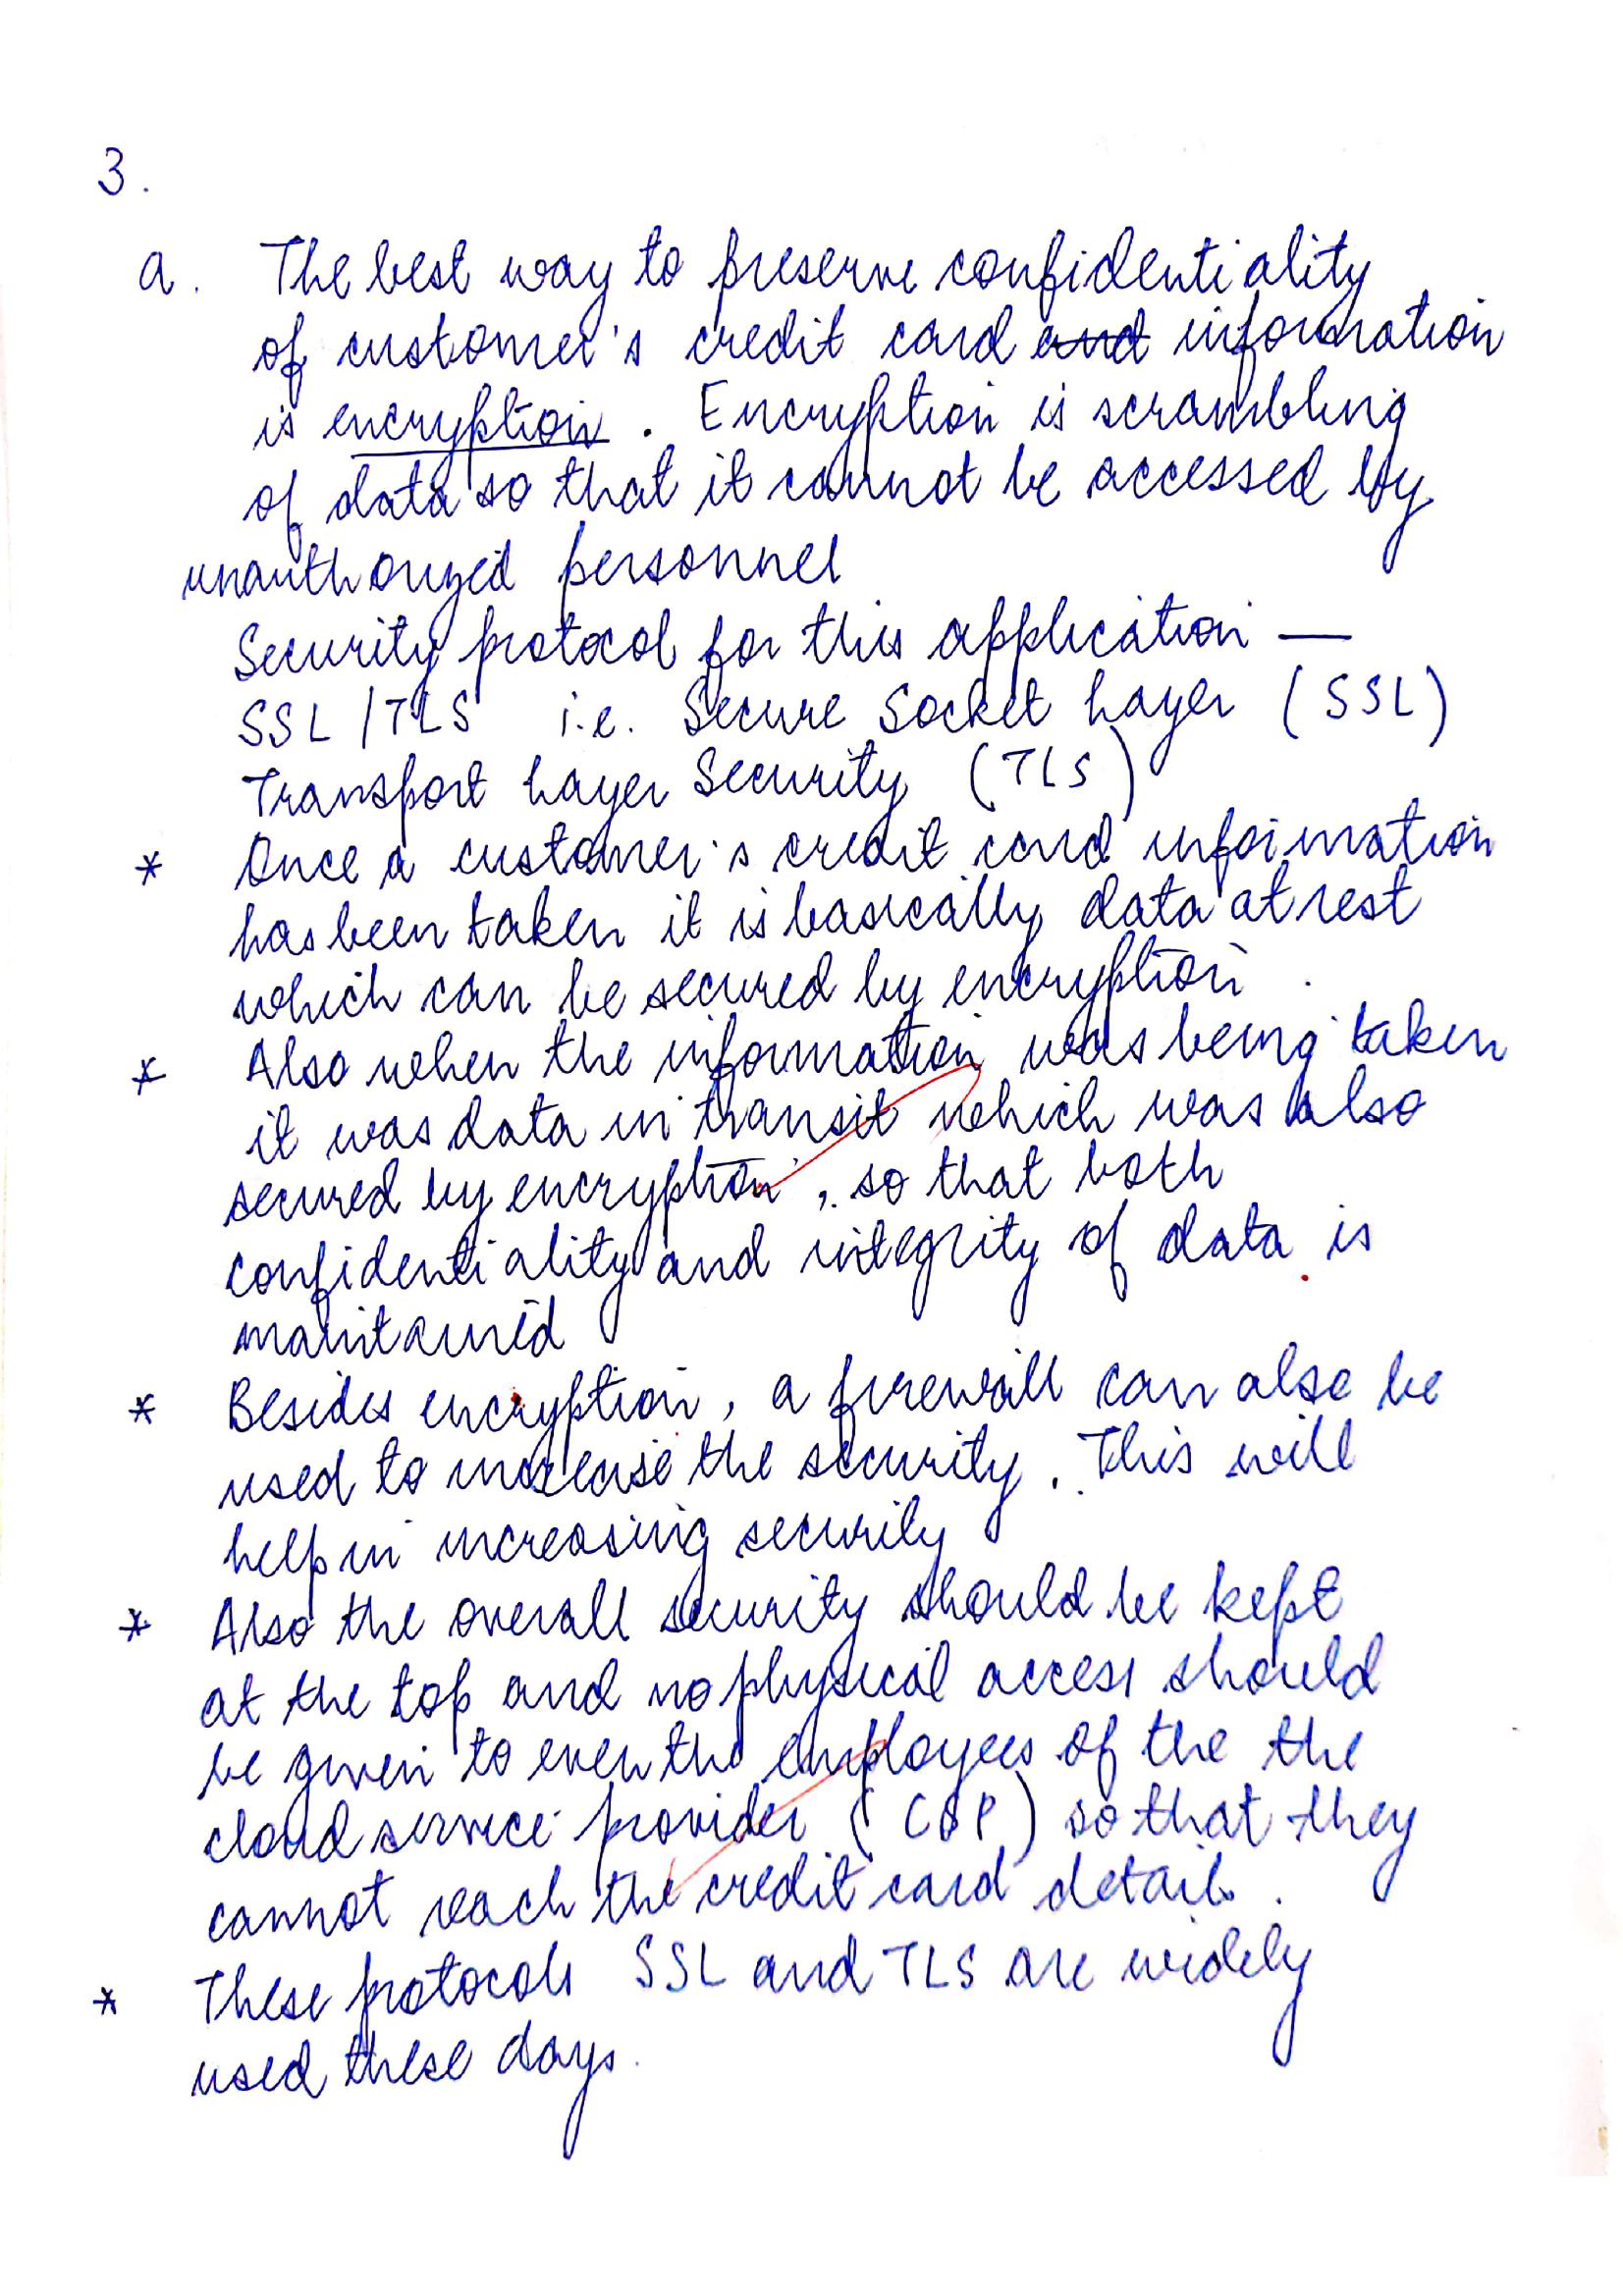 3.
a. The best way to preserve confidentiality
of customer's credit card and information
is encryption. Encryption is scrambling
of data so that it cannot be accessed by
unauthorized personnel
Security protocol for this application —
SSL/TLS i.e. Secure Socket Layer (SSL)
Transport Layer Security (TLS)
* Once a customer's credit card information
has been taken it is basically data at rest
which can be secured by encryption.
* Also when the information was being taken
it was data in transit which was also
secured by encryption, so that both
confidentiality and integrity of data is
maintained
* Besides encryption, a firewall can also be
used to increase the security. This will
help in increasing security
* Also the overall security should be kept
at the top and no physical access should
be given to even the employees of the the
cloud service provider (CSP) so that they
cannot reach the credit card details.
* These protocols SSL and TLS are widely
used these days.